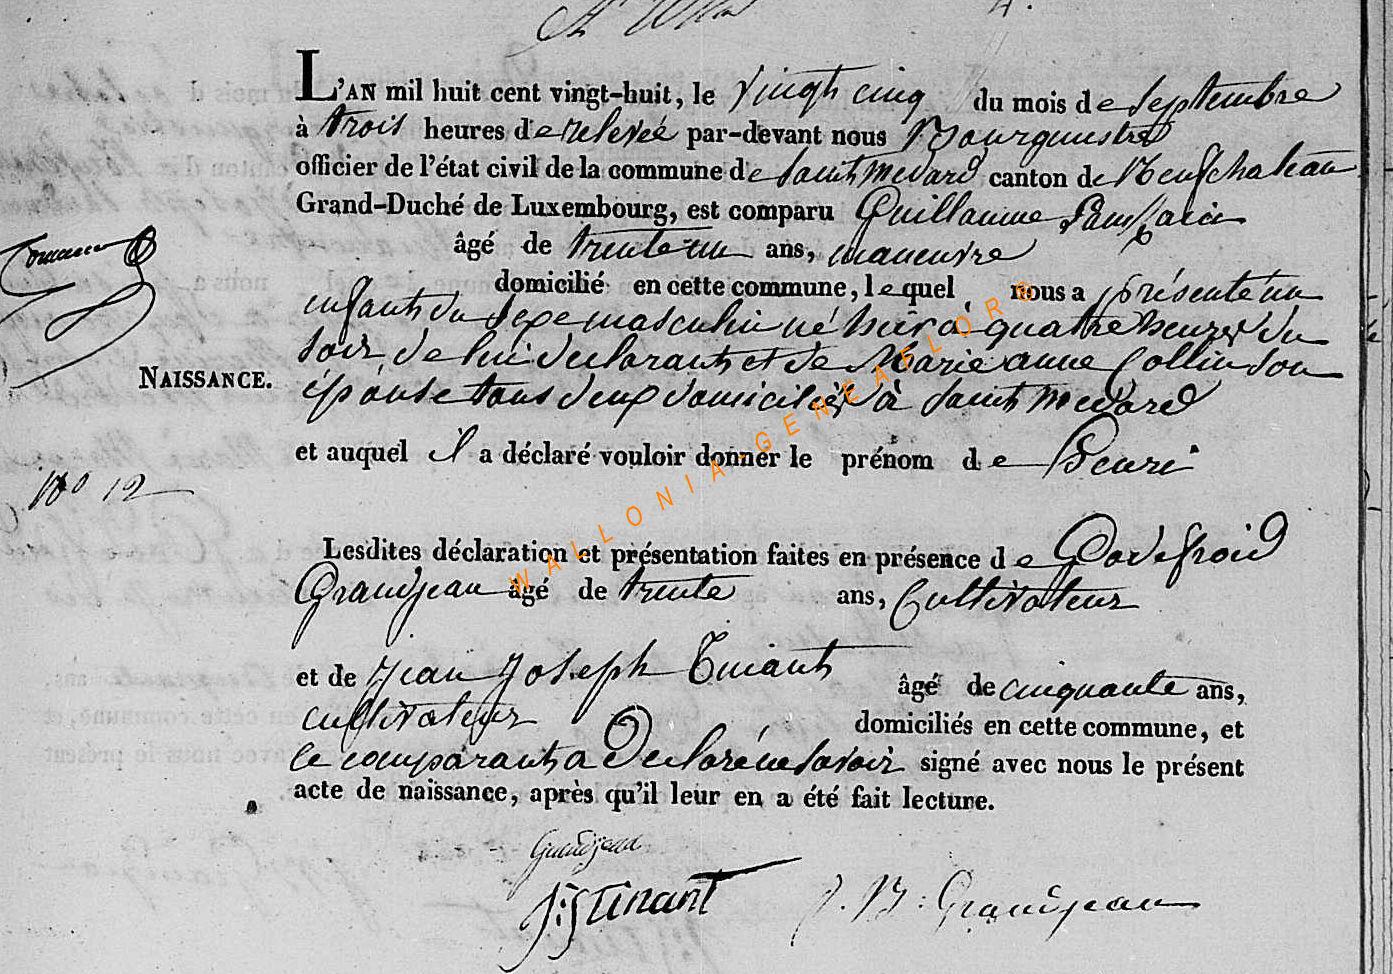 L'AN mil huit cent vingt-huit, le vingt cinq du mois de septembre
à trois heures de relevée par-devant nous Bourguestre
officier de l'état civil de la commune de saint medard canton de Neufchateau
Grand-Duché de Luxembourg, est comparu Guillaume
âgé de trente un ans, maneuvre
domicilié en cette commune, lequel nous a présenté un
enfant du sexe masculin né hier à quatre heures du
soir de lui déclarant et de Marie anne Collin son
épouse tous deux domiciliés à saint medard
NAISSANCE.
et auquel il a déclaré vouloir donner le prénom de Henri
No 12
Lesdites déclaration et présentation faites en présence de Godefroid
Grandjean âgé de trente ans, Cultivateur
et de Jean Joseph Tinant âgé de cinquante ans,
cultivateur domiciliés en cette commune, et
le comparant a déclaré ne savoir signé avec nous le présent
acte de naissance, après qu'il leur en a été fait lecture.
Grandjean
J: J Tinant J. B: Grandjean
WALLONIA-GENEAFLORE